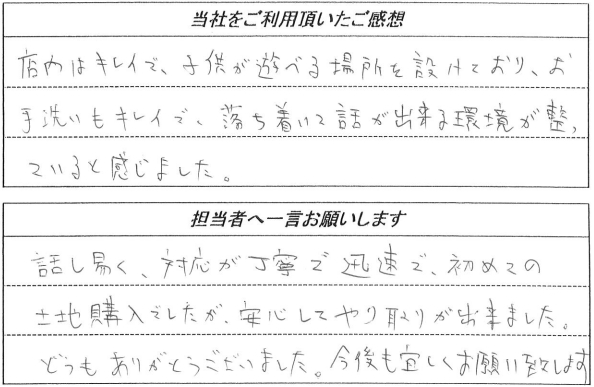 当社をご利用頂いたご感想
店内はキレイで、子供が遊べる場所を設けており、お
手洗いもキレイで、落ち着いて話が出来る環境が整っ
ていると感じました。
担当者へ一言お願いします
話し易く、対応が丁寧で迅速で、初めての
土地購入でしたが、安心してやり取りが出来ました。
どうもありがとうございました。今後も宜しくお願い致します